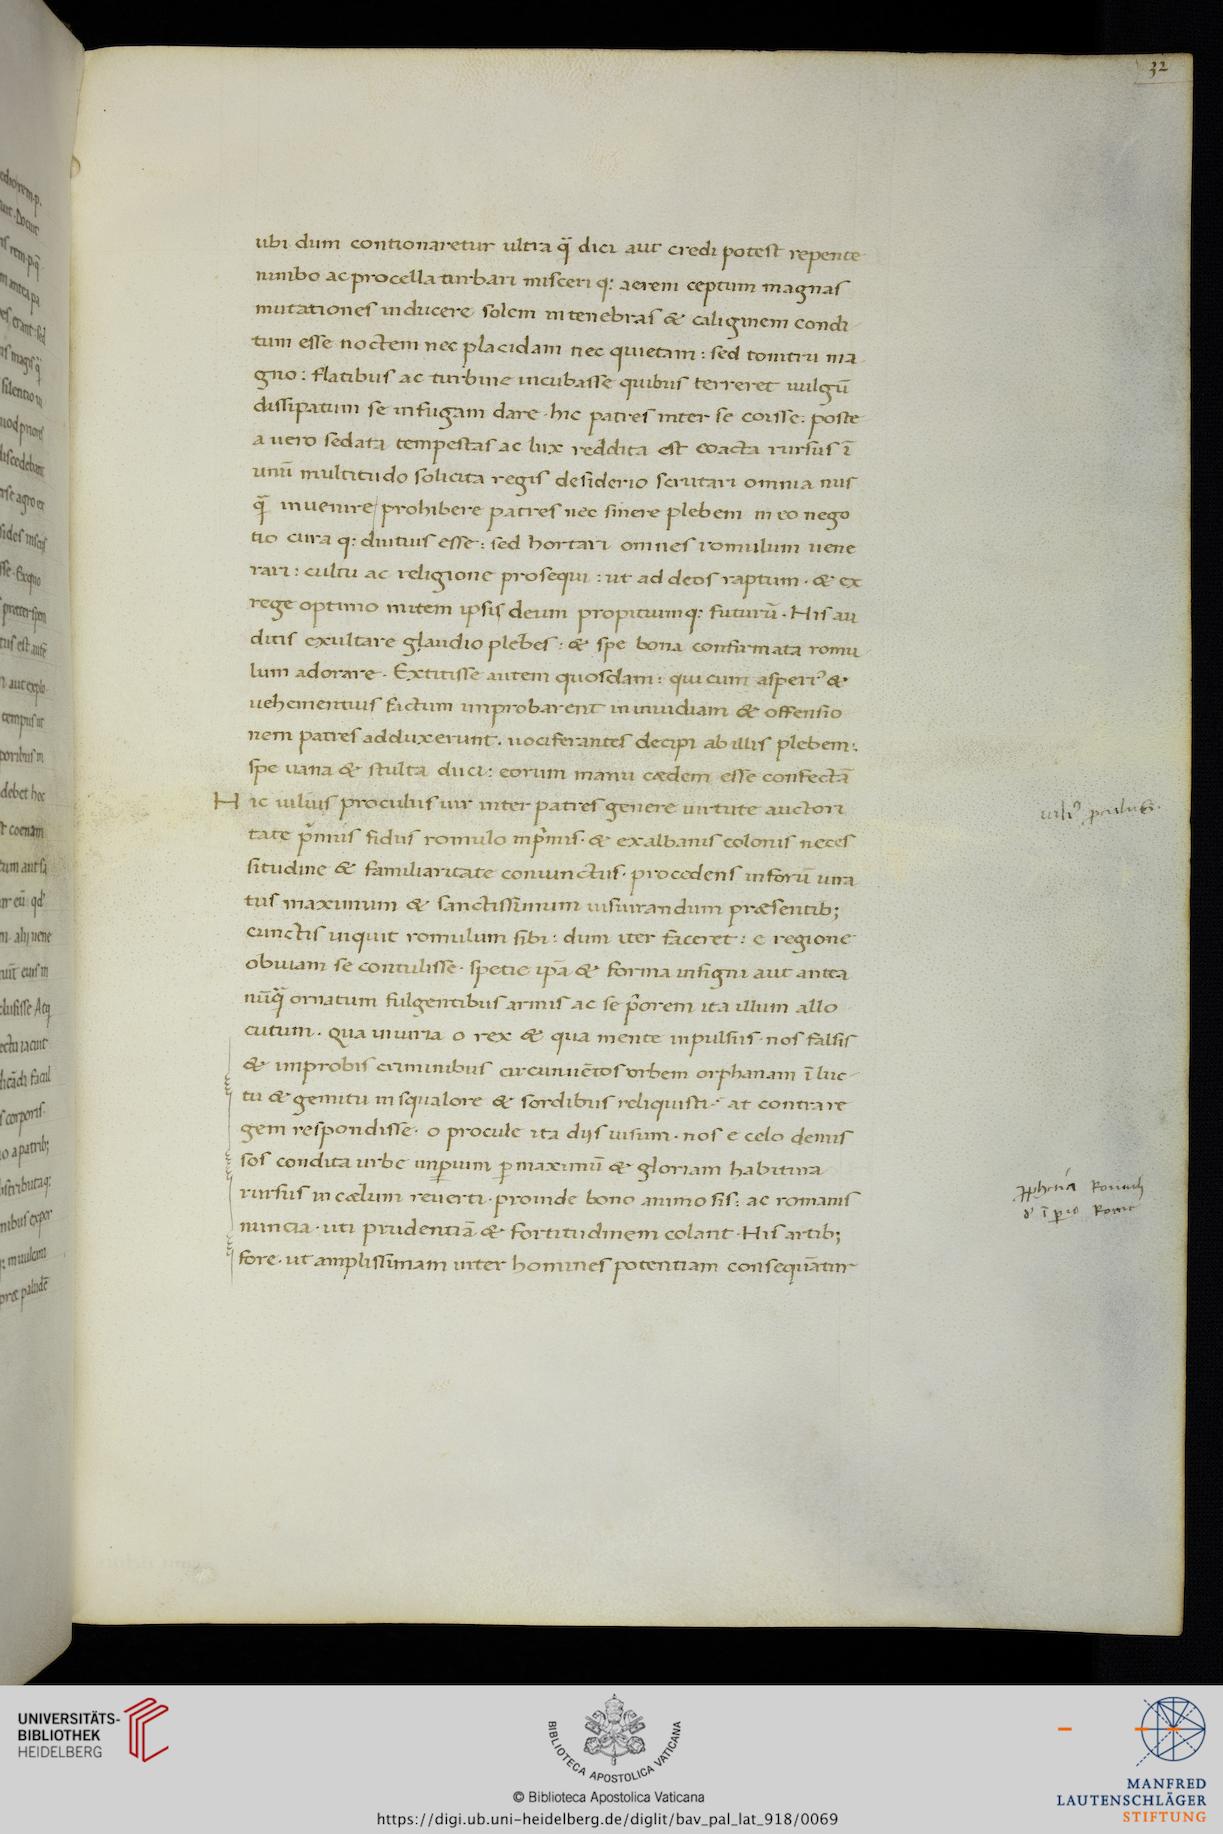 32
ubi dum contionaretur ultra q̄ dici aut credi potest repente
nimbo ac procella turbari misceri q: aerem ceptum magnas
mutationes inducere solem in tenebras & caliginem condi
tum esse noctem nec placidam nec quietam: sed tonitru ma
gno: flatibus ac turbine incubasse quibus terreret uulgū
dissipatum se in fugam dare· hic patres inter se coisse: poste
a uero sedata tempestas ac lux reddita est coacta rursus ī
unū multitudo solicita regis desiderio scrutari omnia nus
q̄ inuenire / prohibere patres nec sinere plebem in eo nego
tio cura q: diutius esse: sed hortari omnes romulum uene
rari: cultu ac religione prosequi: ut ad deos raptum· & ex
rege optimo mitem ipsis deum propitiumq: futurū· His au
ditis exultare glaudio plebes: & spe bona confirmata romu
lum adorare· Extitisse autem quosdam: qui cum asperi᾽ &
uehementius factum improbarent in inuidiam & offensio
nem patres adduxerunt· uociferantes decipi ab illis plebem:
spe uana & stulta duci: eorum manu cædem esse confectā
Hic iulius proculus uir inter patres genere uirtute auctori
tate p̄mus fidus romulo inp̄mis· & ex albanis colonis neces
situdine & familiaritate coniunctus· procedens in forū iura
tus maximum & sanctissimum iusiurandum præsentib;
cunctis inquit romulum sibi: dum iter faceret: e regione
obuiam se contulisse· spetie ipā & forma insigni aut antea
nūq̄ ornatum fulgentibus armis ac se p̄orem ita illum allo
cutum· Qua iniuria o rex & qua mente inpulsus· nos falsis
& improbis criminibus circunuētos orbem orphanam ī luc-
tu & gemitu in squalore & sordibus reliquisti· at contra re
gem respondisse· o procule ita dijs uisum· nos e celo demis
sos condita urbe imperium p maximū & gloriam habitura
rursus in cælum reuerti· proinde bono animo sis: ac romanis
nuncia· uti prudentiā & fortitudinem colant· His artib;
fore· ut amplissimam inter homines potentiam consequātur
iuli᾽ proculus·
UNIVERSITÄTS-
BIBLIOTHEK
HEIDELBERG
BIBLIOTECA APOSTOLICA VATICANA
© Biblioteca Apostolica Vaticana
https://digi.ub.uni-heidelberg.de/diglit/bav_pal_lat_918/0069
MANFRED
LAUTENSCHLÄGER
STIFTUNG